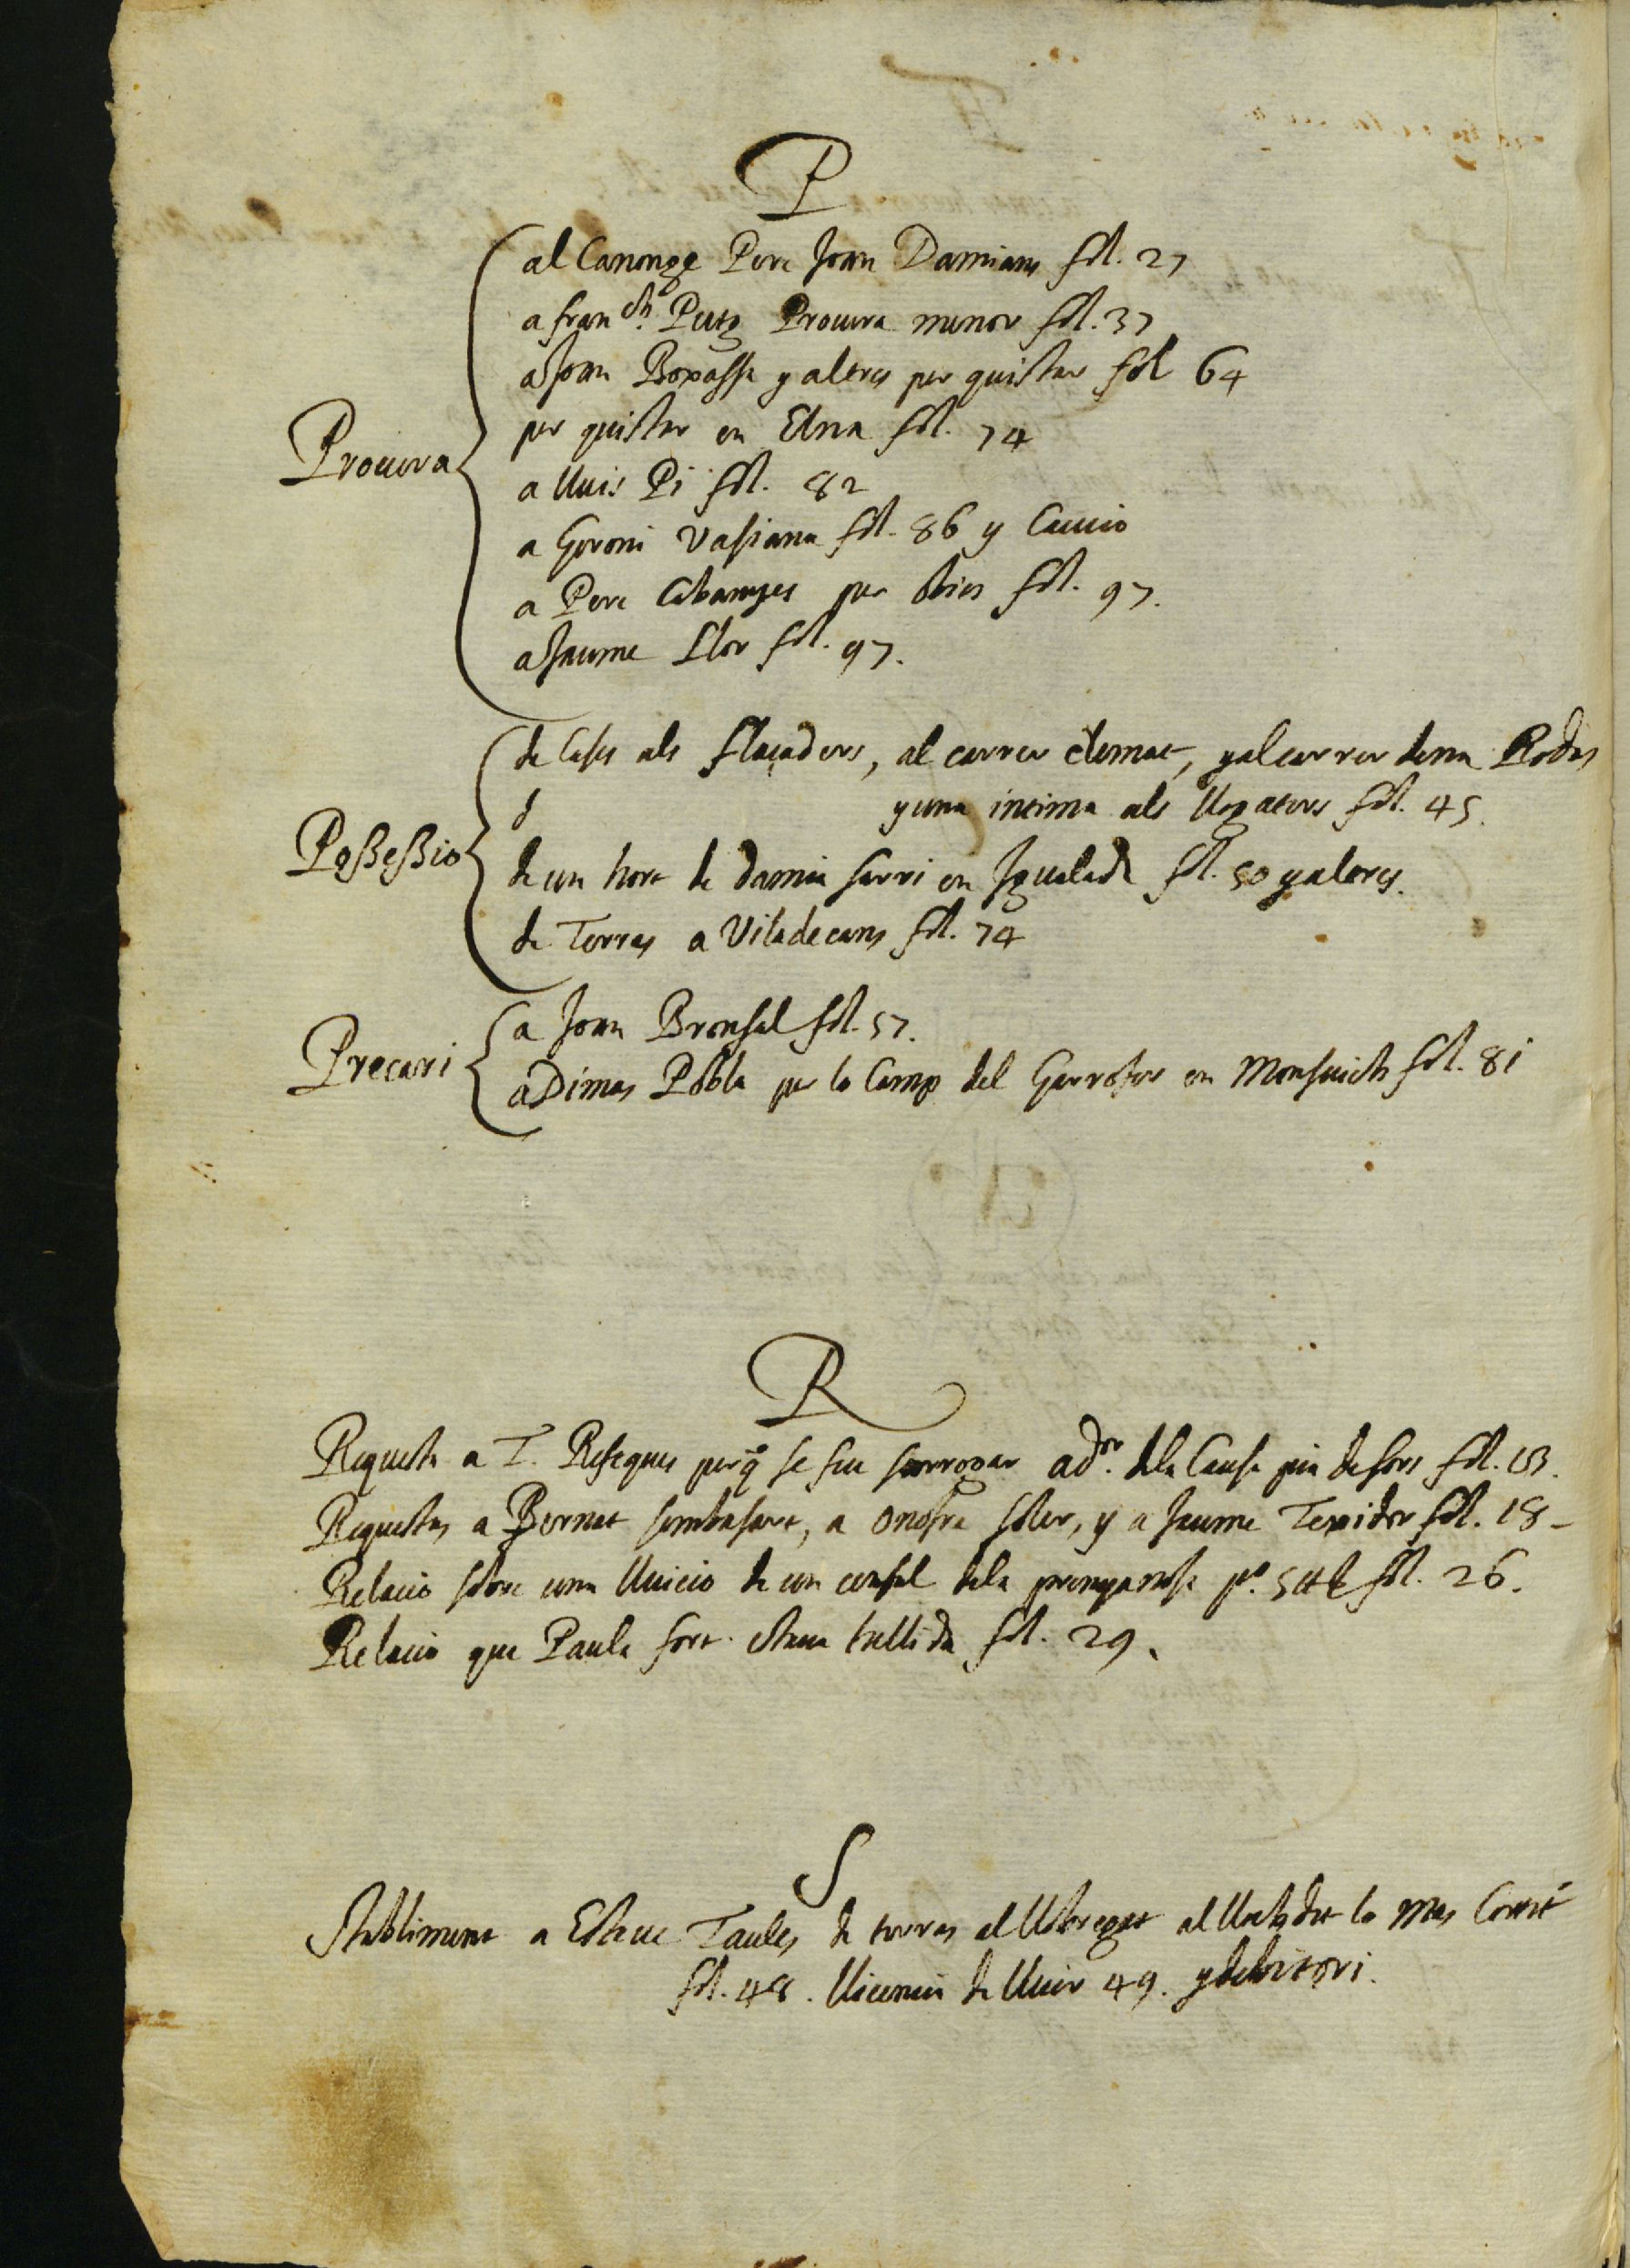 P
Procura
al Canonge Pere Joan Damians fol. 27
a fran.ch Puig Procura menor fol. 37
a Joan Boxassa y altres per quistar fol 64
per quistar en Elna fol. 74
a lluis Pi fol. 82
a Geroni Vasiana fol. 86 y Caucio
a Pere Cabanyes per obies fol. 97.
a Jaume Llor fol. 97.
Possessio
de Cases als flaçaders, al carrer clemat, y al carrer dena Rodas
y una intima als llogaters fol. 45.
de un hort de damia sarri en Igualada fol. 50 y altres.
de Terras a Viladecans fol. 74
Precari
a Joan Bronsal fol. 57.
a Dimas Pobla per lo Camp del Garrofer en Monjuich fol. 81
R
Requesta a T. Reseques perq̃ se feu surrogar ad.or dela Causa pia de fors fol. 13.
Requestas a Bernat sembasart, a onofra soler, y a Jaume Texidor fol. 18
Relacio sobre una lluicio de un censal dela prenyanosa p.o 5 fol. 26.
Relacio que Paula fort estava tullida fol. 29.
S
Stabliment a Esteve Taules de terras al llobregat al lloch dit lo mas
fol. 48. llicencia de lluir 49. y debitori.